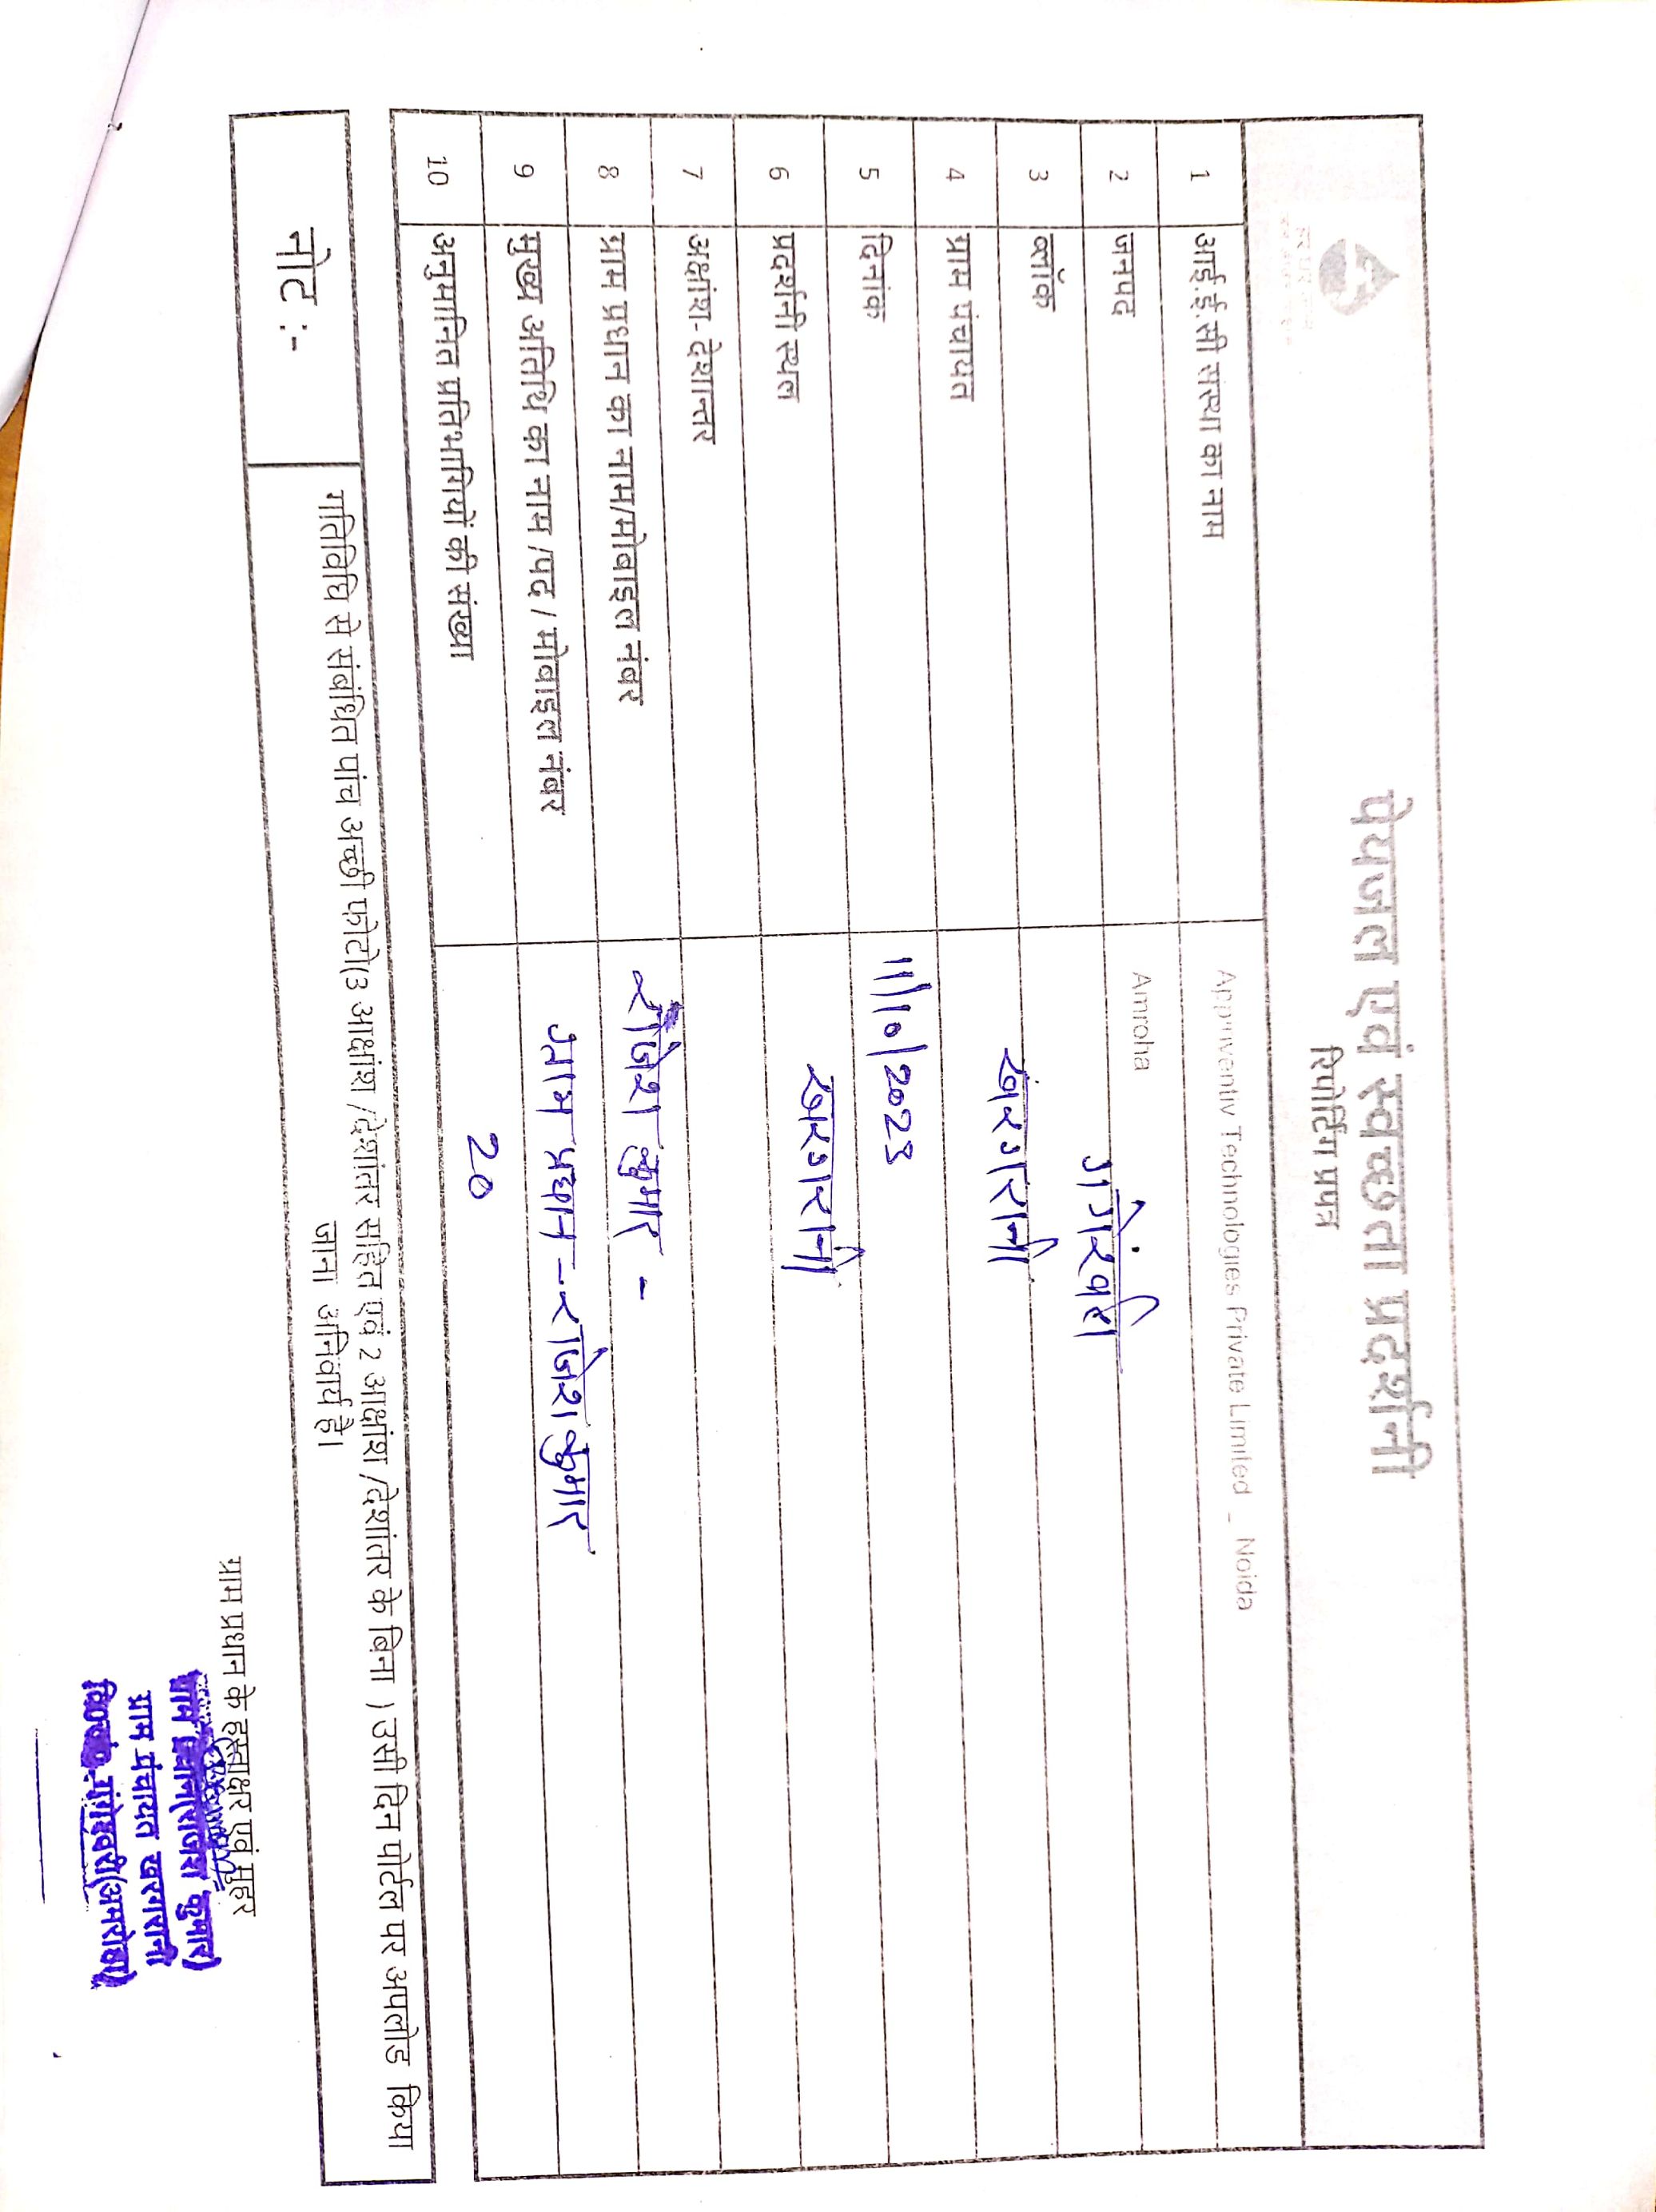 पेयजल एवं स्वच्छता प्रदर्शनी
रिपोर्टिंग प्रपत्र
1 आई.ई.सी संस्था का नाम Appinventiv Technologies Private Limited _ Noida
2 जनपद Amroha
3 ब्लॉक गंगेश्वरी
4 ग्राम पंचायत खरगरानी
5 दिनांक 11/10/2023
6 प्रदर्शनी स्थल खरगरानी
7 अक्षांश- देशान्तर
8 ग्राम प्रधान का नाम/मोबाइल नंबर राजेश कुमार -
9 मुख्य अतिथि का नाम /पद / मोबाइल नंबर ग्राम प्रधान - राजेश कुमार
10 अनुमानित प्रतिभागियों की संख्या 20
नोट :- गतिविधि से संबंधित पांच अच्छी फोटो(3 आक्षांश /देशांतर सहित एवं 2 आक्षांश /देशांतर के बिना ) उसी दिन पोर्टल पर अपलोड किया
जाना अनिवार्य है।
ग्राम प्रधान के हस्ताक्षर एवं मुहर
ग्राम प्रधान(राजेश कुमार)
ग्राम पंचायत खरगरानी
वि०खं०-गंगेश्वरी(अमरोहा)